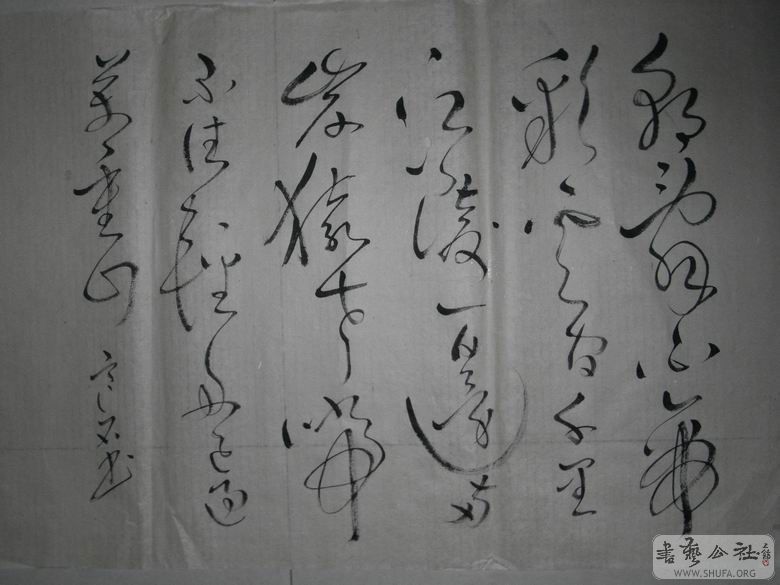 朝辞白帝
彩云间千里
江陵一日还两
岸猿声啼
不住轻舟已过
万重山
石书
書藝公社
WWW.SHUFA.ORG